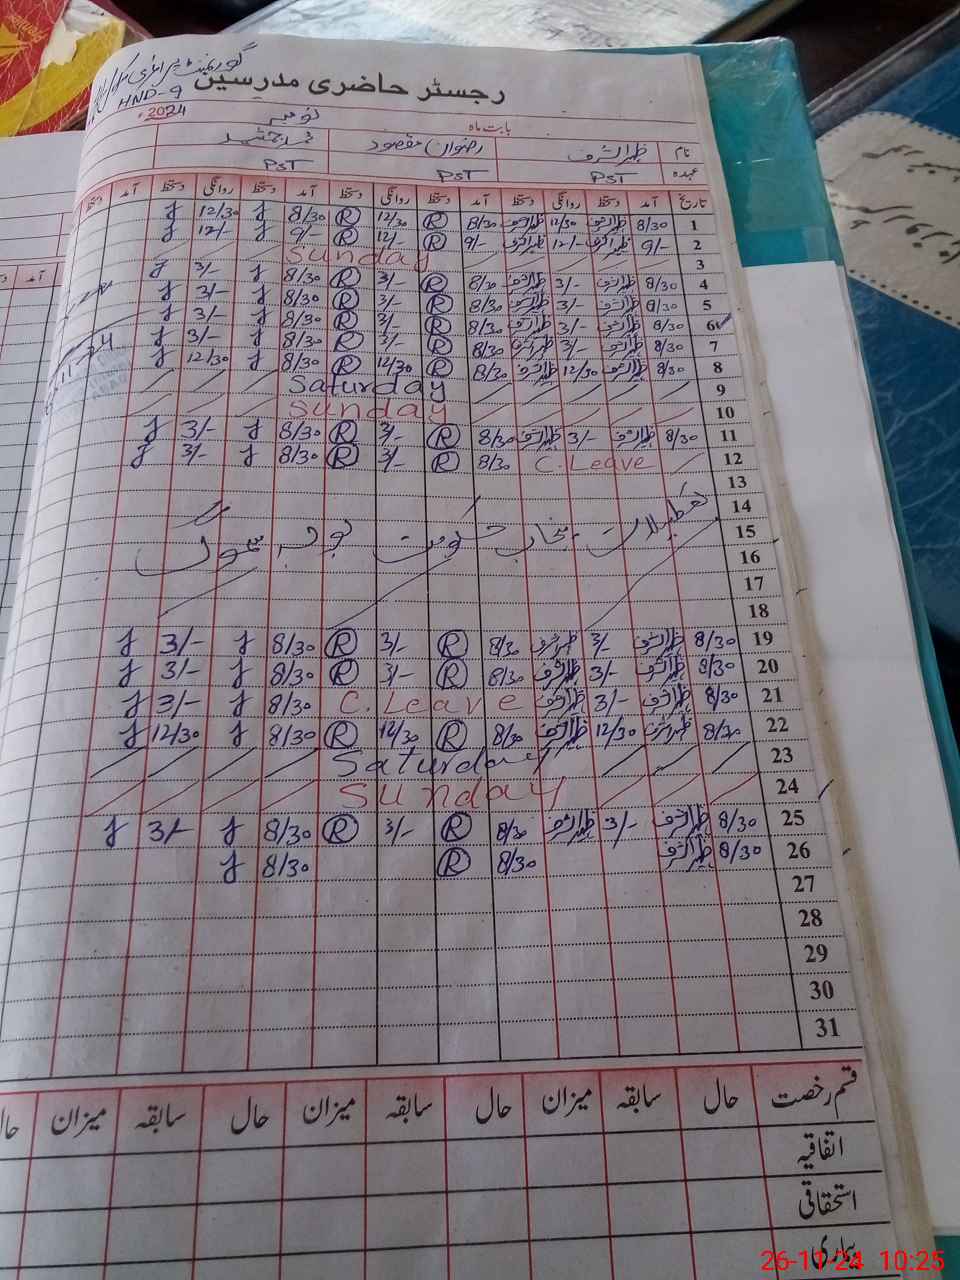 گورنمنٹ پرائمری سکول
رجسٹر حاضری مدرسین
HND-9
بابت ماہ نومبر 2024ء
نام ظہیر اشرف رضوان مقصود محمد جمشید
عہدہ PST PST PST
تاریخ آمد دستخط روانگی دستخط آمد دستخط روانگی دستخط آمد دستخط روانگی دستخط آمد دستخط
1 8/30 ظہیر اشرف 12/30 ظہیر اشرف 8/30 R 12/30 R 8/30 J 12/30 J
2 9/- ظہیر اشرف 12/- ظہیر اشرف 9/- R 12/- R 9/- J 12/- J
3 Sunday
4 8/30 ظہیر اشرف 3/- ظہیر اشرف 8/30 R 3/- R 8/30 J 3/- J
5 8/30 ظہیر اشرف 3/- ظہیر اشرف 8/30 R 3/- R 8/30 J 3/- J
6 8/30 ظہیر اشرف 3/- ظہیر اشرف 8/30 R 3/- R 8/30 J 3/- J
7 8/30 ظہیر اشرف 3/- ظہیر اشرف 8/30 R 3/- R 8/30 J 3/- J
8 8/30 ظہیر اشرف 12/30 ظہیر اشرف 8/30 R 12/30 R 8/30 J 12/30 J
9 Saturday
10 Sunday
11 8/30 ظہیر اشرف 3/- ظہیر اشرف 8/30 R 3/- R 8/30 J 3/- J
12 C.Leave 8/30 R 3/- R 8/30 J 3/- J
13
14
15 تعطیلات پنجاب حکومت بوجہ سموگ
16
17
18
19 8/30 ظہیر اشرف 3/- ظہیر اشرف 8/30 R 3/- R 8/30 J 3/- J
20 8/30 ظہیر اشرف 3/- ظہیر اشرف 8/30 R 3/- R 8/30 J 3/- J
21 8/30 ظہیر اشرف 3/- ظہیر اشرف C.Leave 8/30 J 3/- J
22 8/30 ظہیر اشرف 12/30 ظہیر اشرف 8/30 R 12/30 R 8/30 J 12/30 J
23 Saturday
24 Sunday
25 8/30 ظہیر اشرف 3/- ظہیر اشرف 8/30 R 3/- R 8/30 J 3/- J
26 8/30 ظہیر اشرف 8/30 R 8/30 J
27
28
29
30
31
قسم رخصت حال سابقہ میزان حال سابقہ میزان حال سابقہ میزان حال
اتفاقیہ
استحقاقی
بیماری
26-11-24 10:25